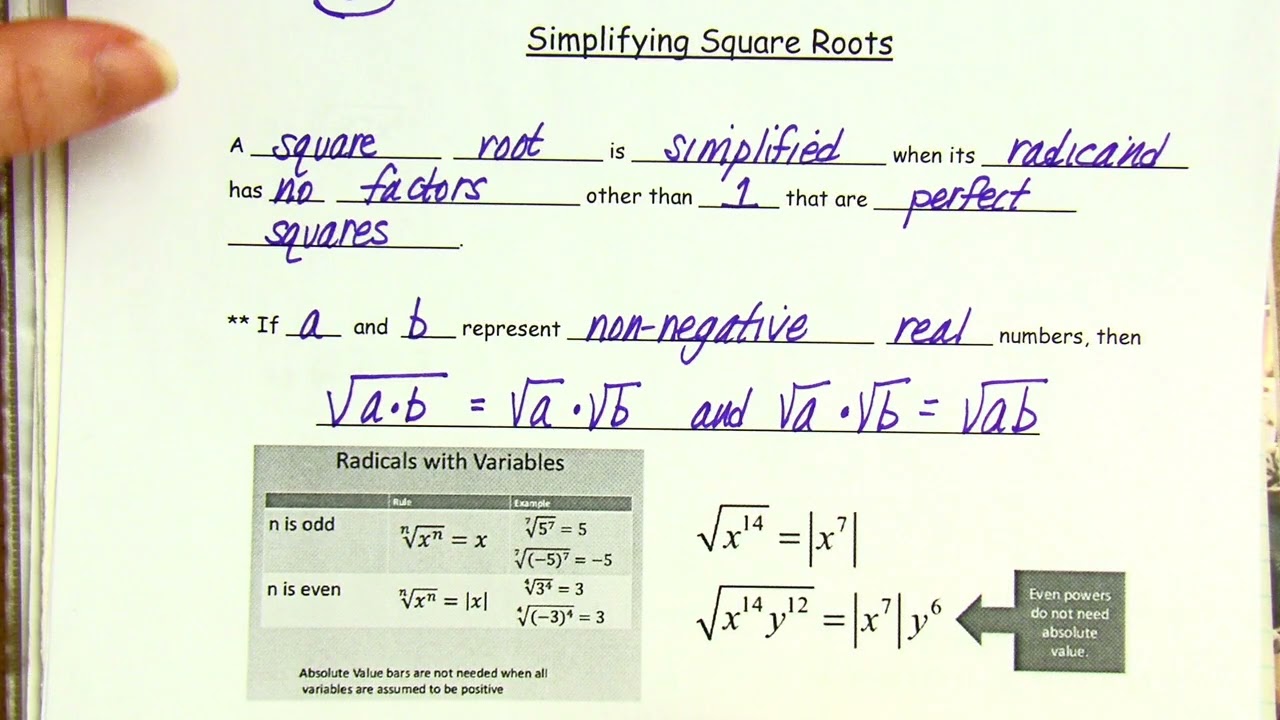 Simplifying Square Roots
A square root is simplified when its radicand
has no factors other than 1 that are perfect
squares.
** If a and b represent non-negative real numbers, then
√(a·b) = √a·√b and √a·√b = √ab
Radicals with Variables
Rule Example
n is odd ⁿ√xⁿ = x ⁷√5⁷ = 5
⁷√(−5)⁷ = −5
n is even ⁿ√xⁿ = |x| ⁴√3⁴ = 3
⁴√(−3)⁴ = 3
Absolute Value bars are not needed when all
variables are assumed to be positive
√x¹⁴ = |x⁷|
√x¹⁴y¹² = |x⁷|y⁶
Even powers
do not need
absolute
value.